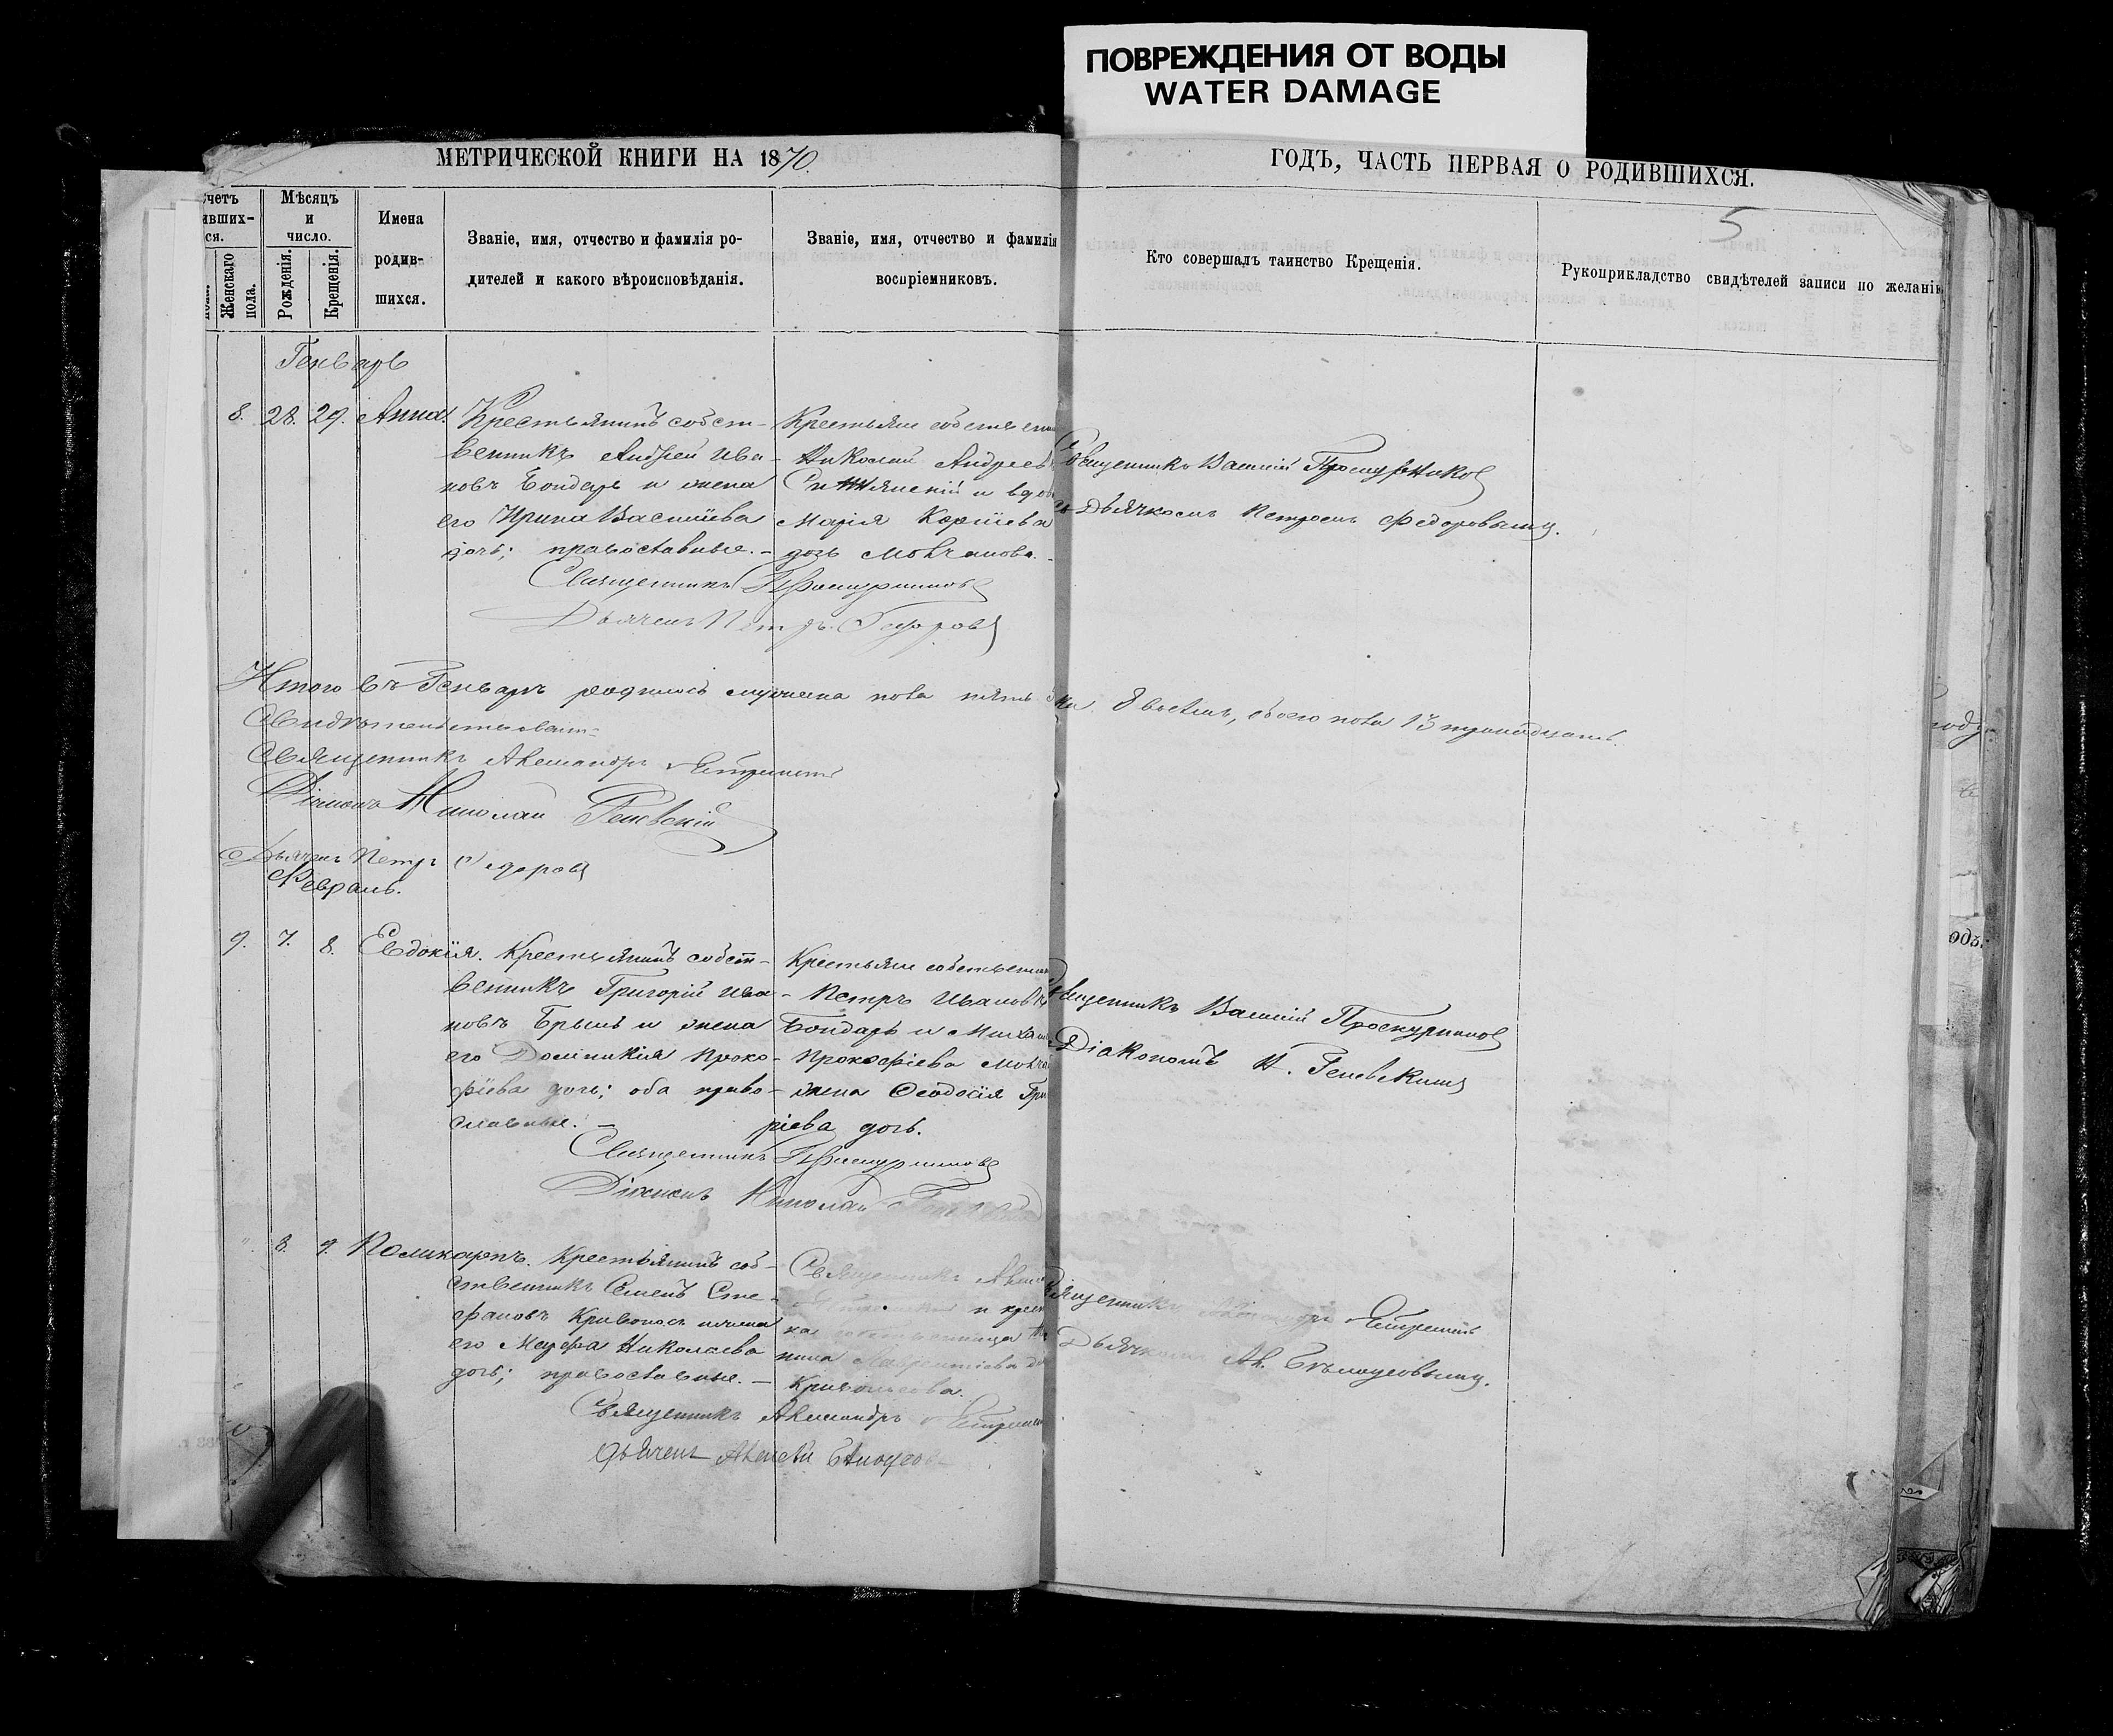 ПОВРЕЖДЕНИЯ ОТ ВОДЫ
WATER DAMAGE
МЕТРИЧЕСКОЙ КНИГИ НА 1870.
ГОДЪ, ЧАСТЬ ПЕРВАЯ О РОДИВШИХСЯ.
5
счетъ
ивших-
ся.
Женскаго
пола.
Мѣсяцъ
и
число.
Рожденія.
Крещенія.
Имена
родив-
шихся.
Званіе, имя, отчество и фамилія ро-
дителей и какого вѣроисповѣданія.
Званіе, имя, отчество и фамилія
воспріемниковъ.
Кто совершалъ таинство Крещенія.
Рукоприкладство свидѣтелей записи по желанію
Генварь
8. 28. 29. Анна.
Крестьянинъ собст-
венникъ Андрей Ива-
новъ Бондарь и жена
его Ирина Васильева
дочь; православные. -
Крестьяне
Николай Андреевъ
и вдова
Марія
дочь Молчанова. -
Священникъ Василій Проскурниковъ
Дьячкомъ Петромъ Федоровымъ.
Священникъ Проскурниковъ
Дьячекъ Петръ Федоровъ
Итого въ Генварѣ родилось мужеска пола пять 8 восемь, обоего пола 13 тринадцать.
Священникъ Александръ
Діаконъ Николай
Дьячекъ Петръ Федоровъ
Февраль.
9. 7. 8. Евдокія.
Крестьянинъ собст-
венникъ Григорій Ива-
новъ и жена
его Домникія Проко-
фіева дочь; оба право-
славные. -
Крестьяне
Петръ Ивановъ
Бондарь и
Прокофіева
жена Ѳеодосія Гри
ріева дочь.
Священникъ Василій Проскурниковъ
Діакономъ Н.
Священникъ Проскурниковъ
Діаконъ Николай
8. 9. Поликарпъ.
Крестьянинъ соб-
ственникъ Семенъ Сте-
фановъ Кривоносъ и жена
его Марфа Николаева
дочь; православные. -
Священникъ
и
собственница
Лаврентіева
Кривоносова.
Священникъ
Дьячкомъ Ал. Бѣлоусовымъ.
Священникъ Александръ
Дьячекъ Алексѣй